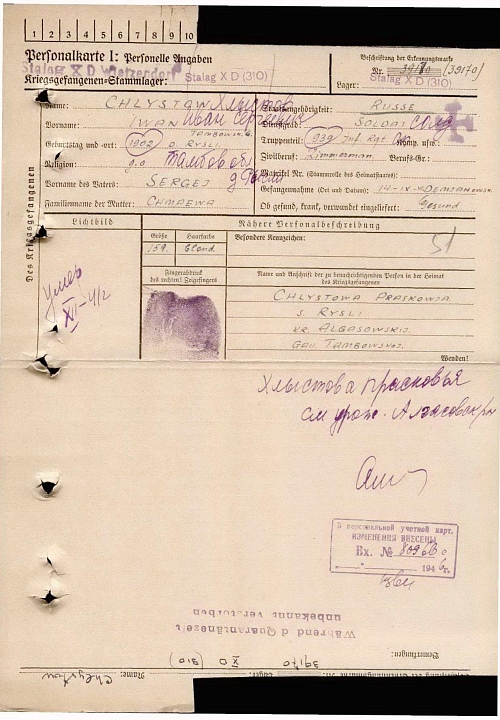 1 2 3 4 5 6 7 8 9 10
Personalkarte I: Personelle Angaben
Stalag X D Wietzendorf
Kriegsgefangenen-Stammlager: Stalag X D (310)
Beschriftung der Erkennungsmarke
Nr. (39170)
Lager: Stalag X D (310)
Des Kriegsgefangenen
Name: CHLYSTOW Хлыстов
Vorname: IWAN Иван Сергеевич
Geburtstag und -ort: 1902 TAMBOWSK. G. RYSLI
Religion: g.o Тамбов обл
Vorname des Vaters: SERGEJ
Familienname der Mutter: CHMAEWA
Staatsangehörigkeit: RUSSE
Dienstgrad: SOLDAT солд
Truppenteil: 939 Inf Rgt Komp. usw.:
Zivilberuf: Zimmerman. Berufs-Gr.:
Matrikel Nr. (Stammrolle des Heimatstaates):
Gefangennahme (Ort und Datum): 14-IX-4 DEMJANOWSK.
Ob gesund, krank, verwundet eingeliefert: Gesund
Lichtbild
Nähere Personalbeschreibung
Größe Haarfarbe Besondere Kennzeichen:
159. blond
51
Fingerabdruck
des rechten! Zeigefingers
Name und Anschrift der zu benachrichtigenden Person in der Heimat
des Kriegsgefangenen
CHLYSTOWA PRASKOWJA
S. RYSLI
KR. ALGASOWSKIJ
GAU. TAMBOWSKOJ.
Wenden!
умер
XII-41г
Хлыстова Прасковья
В персональной учетной карт.
ИЗМЕНЕНИЯ ВНЕСЕНЫ
Вх. №
1946г.
Während d Quarantänezeit
unbekannt verstorben
Bemerkungen:
39170 X D (310)
Name: Chlystow
Lager: